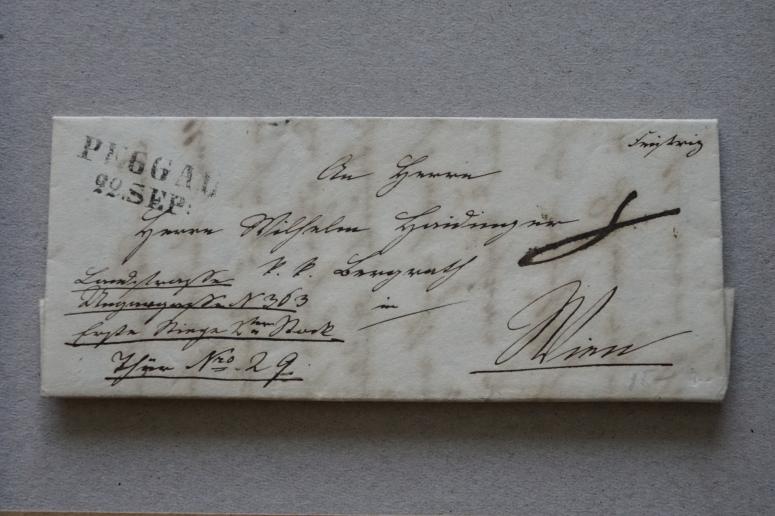 PEGGAU
22. SEP:
Feistriz
An Herrn
Herrn Wilhelm Haidinger
k. k. Bergrath
in
Wien
Landstrasse
Ungargasse N 363
Erste Stiege 2ter Stock
Thür Nro 29.